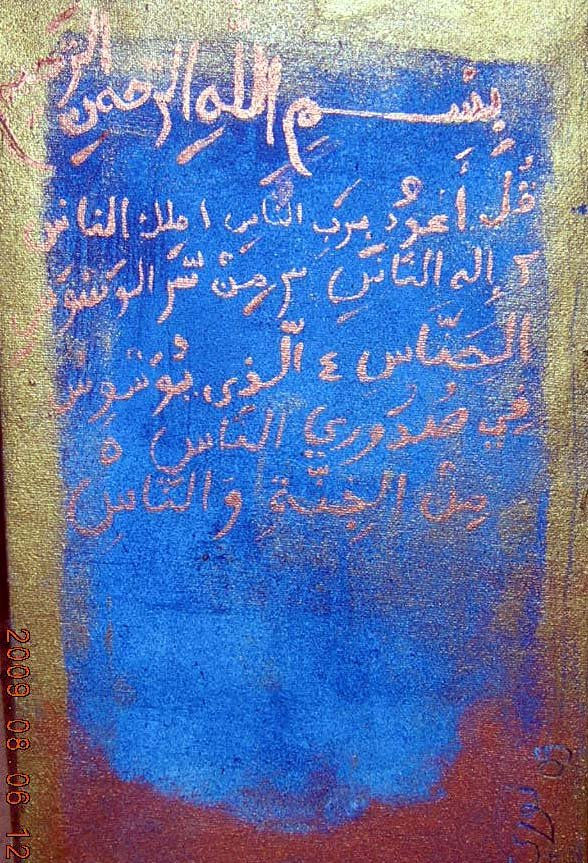 بِسْمِ اللهِ الرَّحمنِ الرَّحيم
قُلْ أَعُوذُ بِرَبِ النَّاسِ ١ ملك الناس
٢ إله النَّاسِ ٣ مِنْ شَّر الوَسْوَس
الخَنّاس ٤ الّذي يُوَسْوِسُ
في صُدُوري النَّاس ٥
مِنْ الجِنَّةِ وَالنَّاسِ
2009 08 06 12